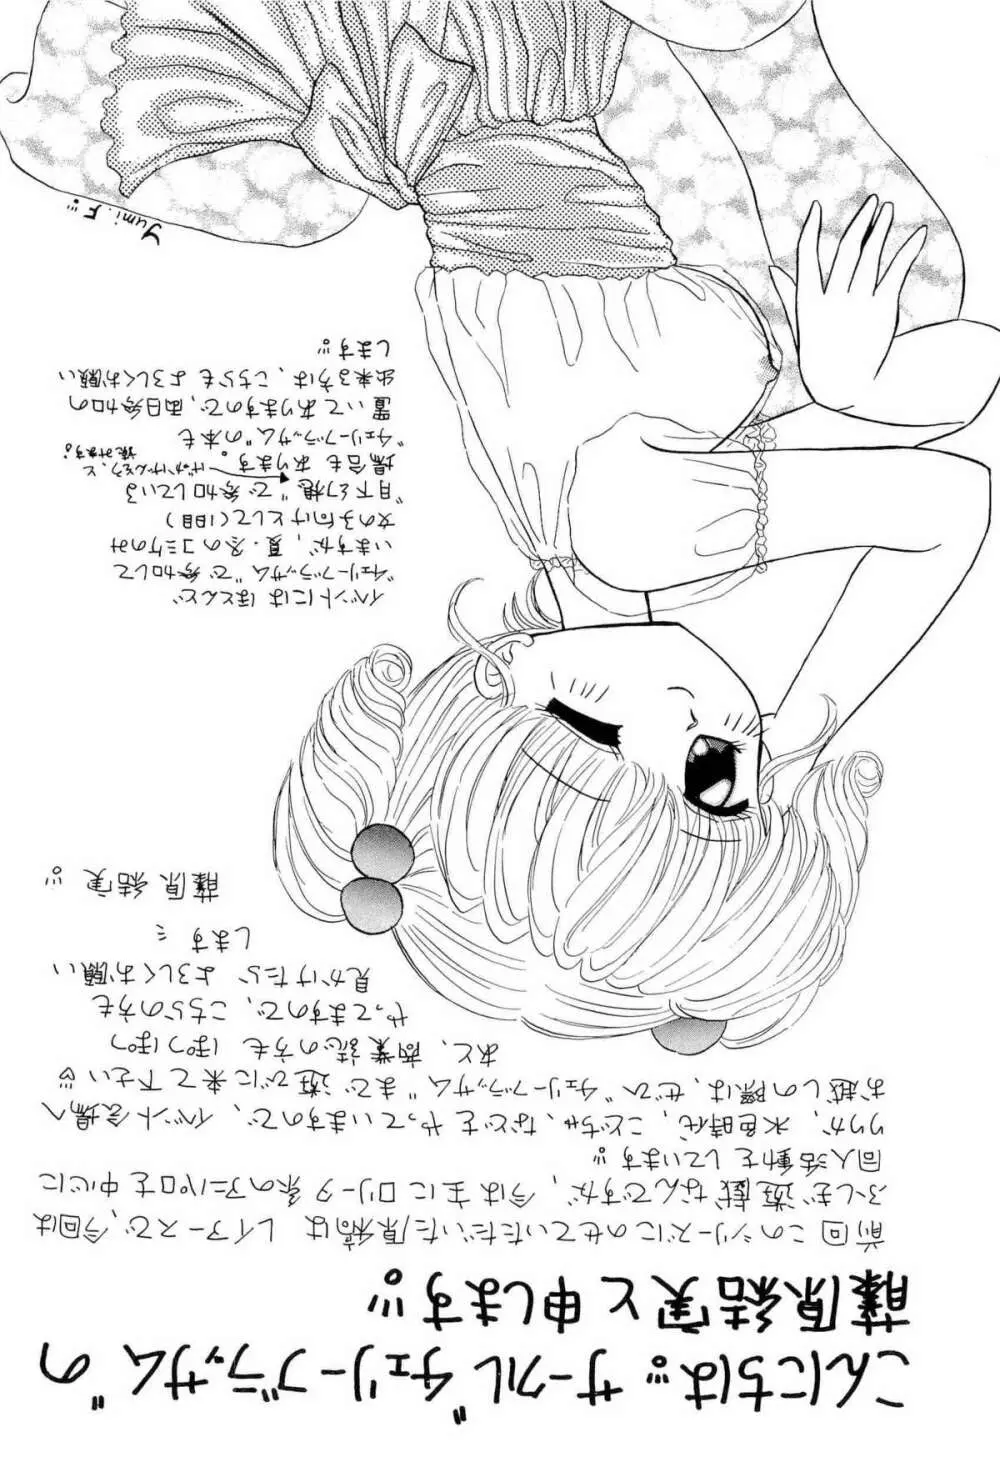 こんにちは!!! サークル"チェリーブラッサム"の
藤原結実と申します!!!
前回このシリーズにのせていただいた原稿は レイアースで、今回は
ふしぎ遊戯なんですが、今は主にロリータ系のアニパロを中心に
同人活動をしています!!!
りりか、水色時代、こどちゃ、などをやっていますので、イベント会場へ
お越しの際は、ぜひ"チェリーブラッサム"まで遊びに来て下さい♡
あと、商業誌の方も ぽつぽつ
やってますので、こちらの方も
見かけたら よろしくお願い
します ミ
藤原結実 !!!
イベントには ほとんど
"チェリーブラッサム"で参加して
いますが、夏・冬のコミケのみ
女の子向けとして(1日目)
"月下幻想"で参加している
場合も あります。
げっかげんそう、と
読みます。
"チェリーブラッサム"の本も
置いてありますので、両日参加の
出来る方は、こちらも よろしくお願い
します!!!
Yumi.F!!!